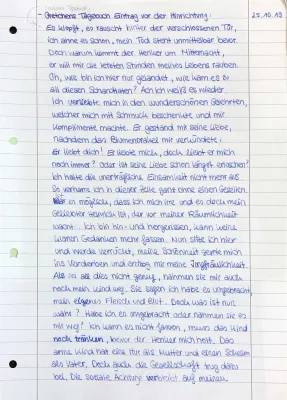 - Gretchens Tagebuch Eintrag vor der Hinrichtung: 25.10.19
Es klopft, es rauscht hinter der verschlossenen Tür,
ich ahne es schon, mein Tod steht unmittelbar bevor.
Doch warum kommt der Henker um Mitternacht,
er will mir die letzten Stunden meines Lebens rauben.
Oh, wie bin ich hier nur gelandet, wie kam es
all diesen Schandtaten? Ach ich weiß es wieder
Ich verliebte mich in den wunderschönen Gelehrten,
welcher mich mit Schmuck beschenkte und mir
Komplimente machte. Er gestand mir seine Liebe,
nachdem das Blumenorakel mir verkündete:
Er liebt dich! Er liebte mich, doch liebt er mich
noch immer? Oder ist seine Liebe schon längst erloschen?
Ich halte die unerträgliche Einsamkeit nicht mehr aus
So verharre ich in dieser Zelle ganz ohne einen Gesellen.
es möglich, dass ich mich irre und es doch mein
Geliebter Heinrich ist, der vor meiner Räumlichkeit
wacht. Ich bin hin- und hergerissen, kann keine
klaren Gedanken mehr fassen. Nun sitze ich hier
und werde verrückt, meine Schönheit geriet mich
ins Verderben und entzog mir meine Jungfräulichkeit.
Als sei all dies nicht genug, nahmen sie mir auch
noch mein Kind weg. Sie sagen ich habe es umgebracht,
mein eigenes Fleisch und Blut. Doch was ist nun
wahr? Habe ich es umgebracht oder nahmen sie es
mir weg? Ich kann es nicht fassen, muss das Kind
noch tränken, bevor der Henker mich holt. Das
arme Kind hat eine Hur als Mutter und einen Schelm
als Vater. Doch auch die Gesellschaft trug dazu
bei. Die soziale Ächtung verbreit auf meinen